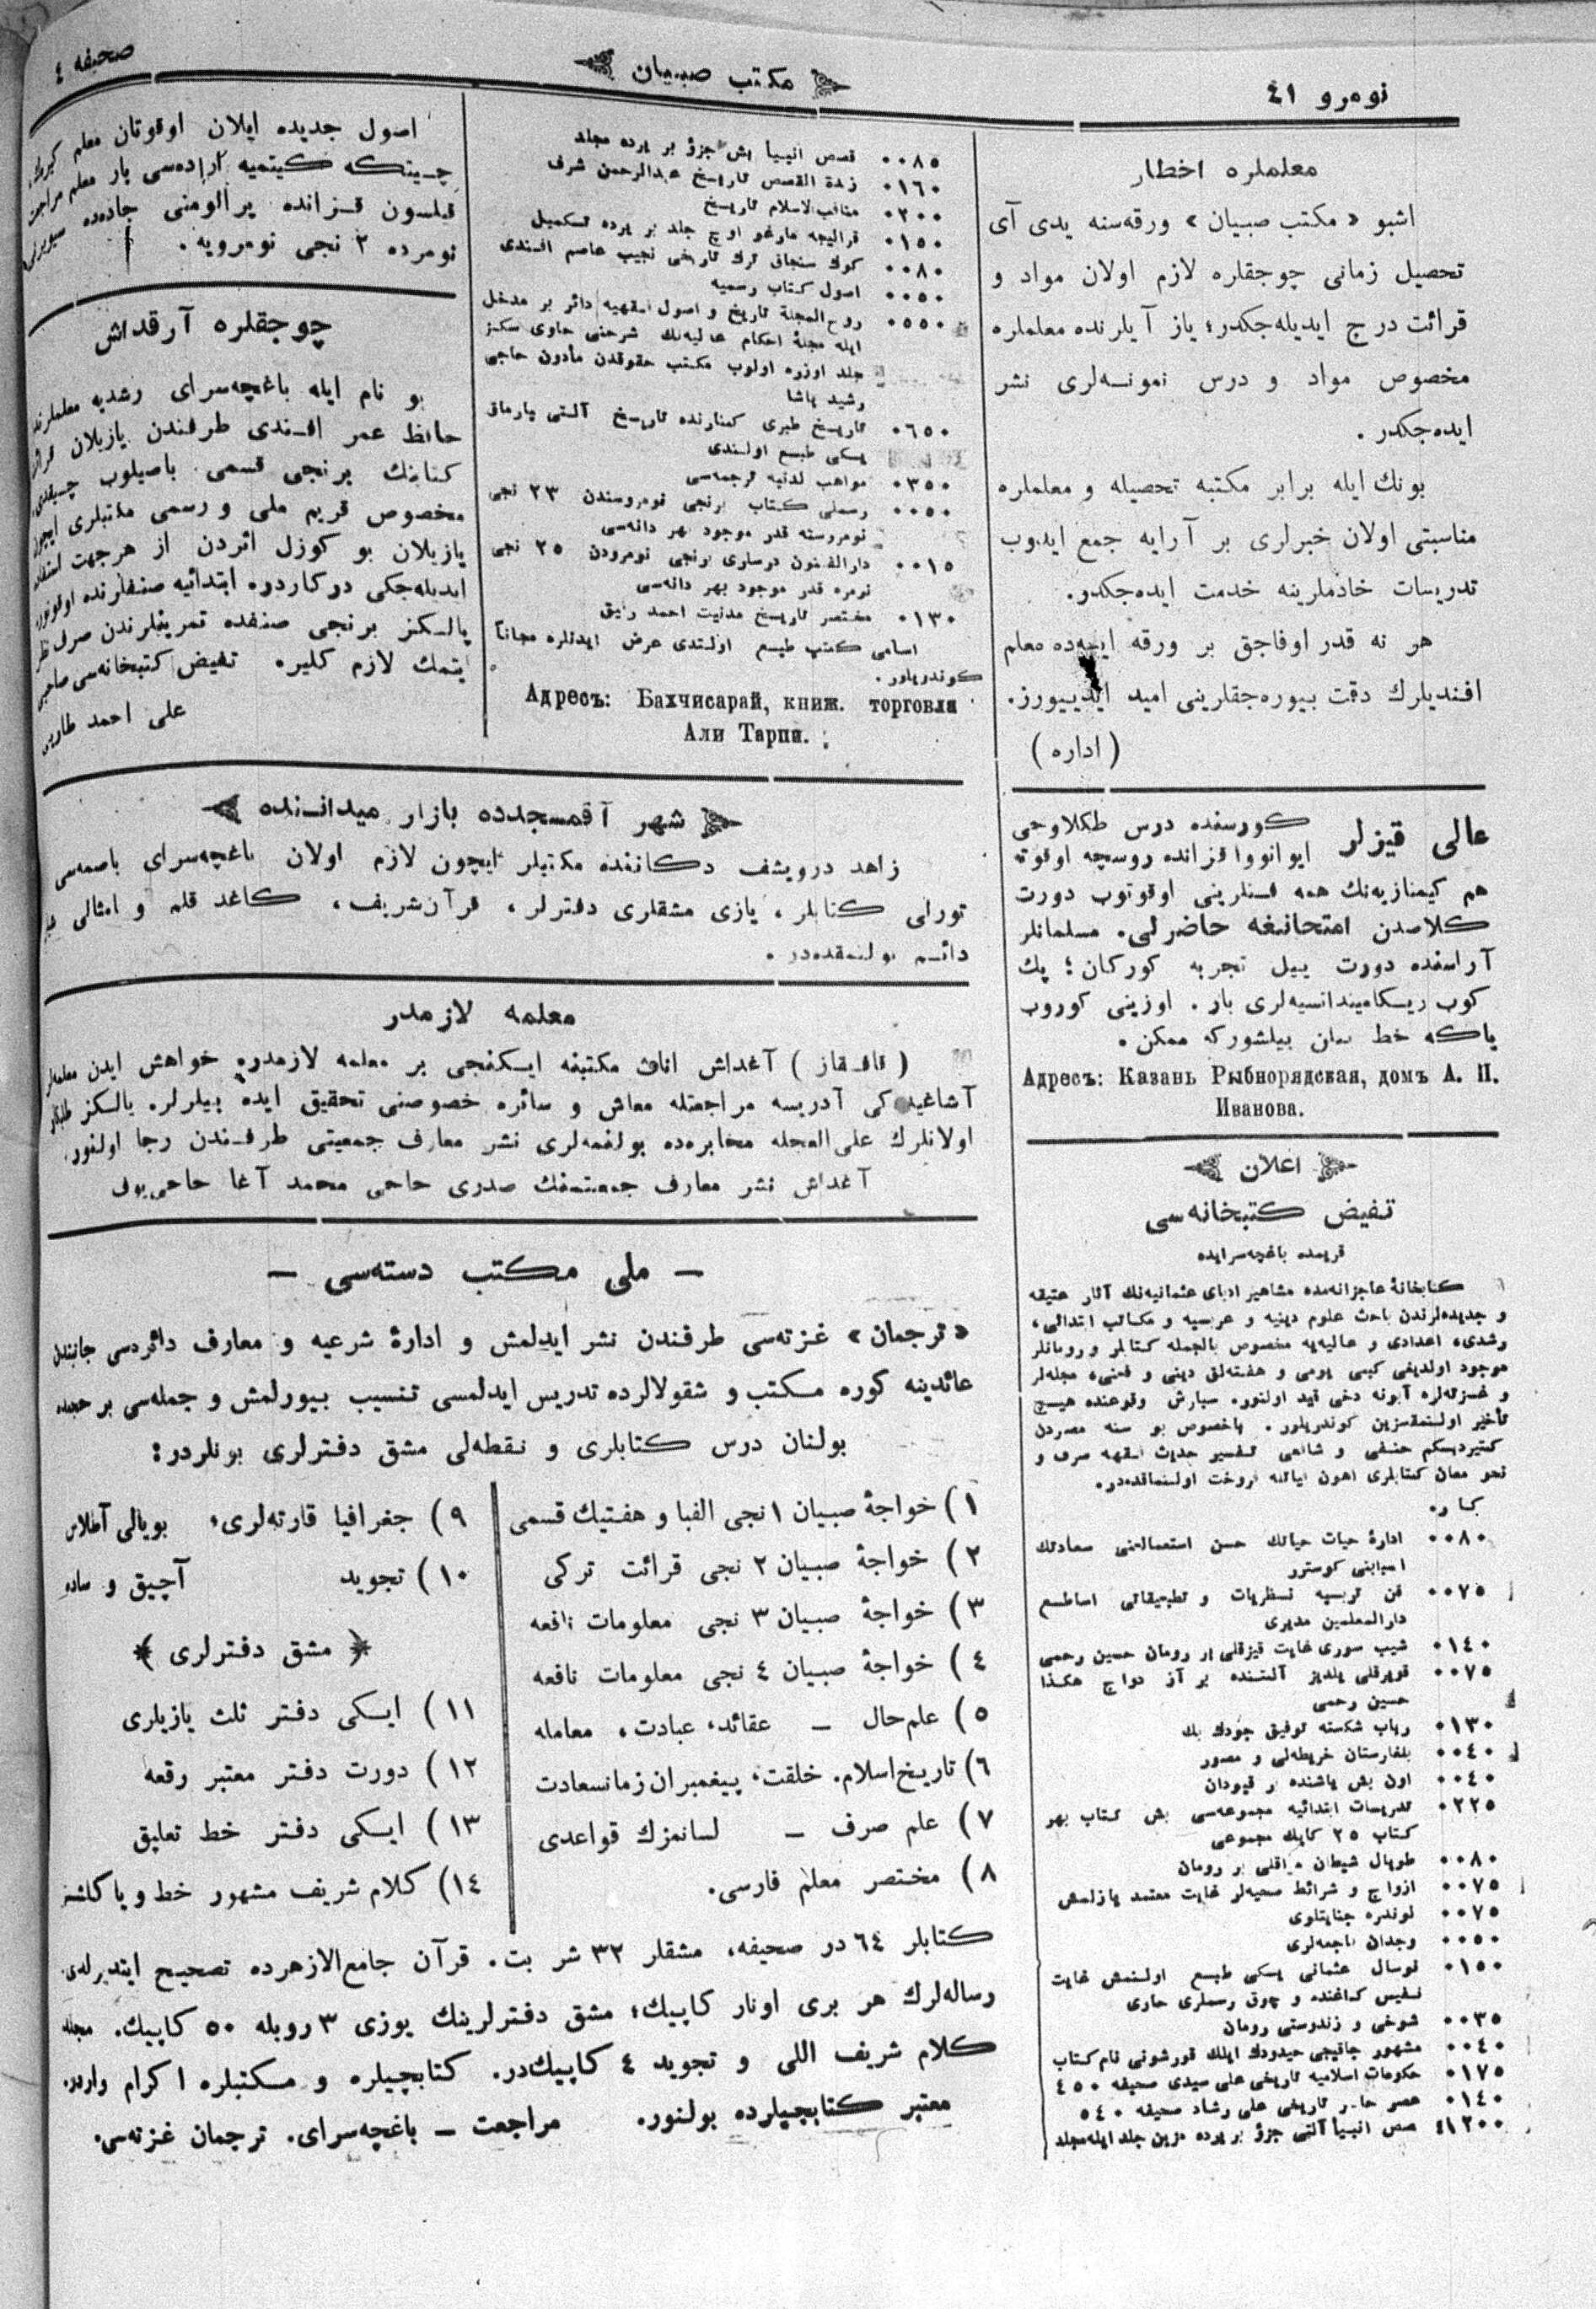 نومرو ٤١
مكتب صبيان
صحيفه ٤
معلملره اخطار
اشبو « مكتب صبيان » ورقه‌سنه يدى آى
تحصيل زمانى چوجقلره لازم اولان مواد و
قرائت درج ايديله‌جكدر؛ ياز آيلرنده معلملره
مخصوص مواد و درس نمونه‌لرى نشر
ايده‌جكدر .
بونك ايله برابر مكتبه تحصيله و معلملره
مناسبتى اولان خبرلرى بر آرايه جمع ايدوب
تدريسات خادملرينه خدمت ايده‌جكدر.
هر نه قدر اوفاجق بر ورقه ايسه‌ده معلم
افنديلرك دقت بيوره‌جقلرينى اميد ايدييورز.
( اداره )
عالى قيزلر كورسنده درس طكلاوجى
ايوانووا قزانده روسچه اوقوته
هم كيمنازيه‌نك همه فنلرينى اوقوتوب دورت
كلاصدن امتحانغه حاضرلى. مسلمانلر
آراسنده دورت ييل تجربه كوركان؛ پك
كوب ريكاميندانسيه‌لرى بار. اوزينى كوروب
ياكه خط بيلشوركه ممكن .
Адресъ: Казань Рыбнорядская, домъ А. П.
Иванова.
اعلان
تفيض كتبخانه‌سى
قريمده باغچه‌سرايده
كتابخانهٔ عاجزانه‌مده مشاهير ادباى عثمانيه‌نك آثار عتيقه
و جديده‌لرندن باحث علوم دينيه و عربيه و مكاتب ابتدائى،
رشدى، اعدادى و عاليه‌يه مخصوص بالجمله كتابلر و رومانلر
موجود اولديغى كبى يومى و هفته‌لق دينى و فنى، مجله‌لر
و غزته‌لره آبونه دخى قيد اولنور. سپارش وقوعنده هيچ
تأخير اولنمقسزين كوندريلور . باخصوص بو سنه مصردن
كتيرديكم حنفى و شافعى تفسير حديث فقهه صرف و
نحو معان كتابلرى
٠٠٨٠ ادارهٔ حيات حياتك حسن استعمالينى سعادتك
اسبابنى كوسترر
٠٠٧٥ فن تربيه نظريات و تطبيقاتى اساطع
دارالمعلمين مديرى
٠١٤٠ شيب سورى غايت قيزقلى بر رومان حسين رحمى
٠٠٧٥ قويرقلى يلديز آلتنده بر آز دواج هكذا
حسين رحمى
٠١٣٠ رباب شكسته توفيق بك
٠٠٤٠ بلغارستان خريطه‌لى و مصور
٠٠٤٠ اون بش ياشنده بر قپودان
٠٢٢٥ تدريسات ابتدائيه مجموعه‌سى بش كتاب بهر
كتاب ٢٥ كاپك مجموعى
٠٠٨٠ طوپال شيطان مراقلى بر رومان
٠٠٧٥ ازواج و شرائط صحيه‌لر غايت معتمد يازلمش
٠٠٧٥ لوندره جنايتلرى
٠٠٥٠ وجدان فاجعه‌لرى
٠١٥٠ نوسال عثمانى يكى طبع اولنمش غايت
نفيس كاغده و چوق رسملرى حاوى
٠٠٣٥ شوخى و زندوستى رومان
٠٠٤٠ مشهور جاليجى حيدودك ايلك قورشونى نام كتاب
٠١٧٥ حكومات اسلاميه تاريخى على سيدى صحيفه ٤٥٠
٠١٤٠ عصر حاضر تاريخى على رشاد صحيفه ٥٤٠
قصص انبيا آلتى جزؤ بر يرده مزين جلد ايله مجلد
٠٠٨٥ قصص انبيا بش جزؤ بر يرده مجلد
٠١٦٠ زبدة القصص تاريخ عبدالرحمن شرف
٠٢٠٠ مناقب الاسلام تاريخ
٠١٥٠ قراليجه مارغو اوچ جلد بر يرده تكميل
٠٠٨٠ كوك سنجاق ترك تاريخى نجيب عاصم افندى
٠٠٥٠ اصول كتاب رسميه
٠٥٥٠ روح المجلة تاريخ و اصول فقهيه دائر بر مدخل
ايله مجلهٔ احكام عاليه‌نك شرحنى حاوى سكز
جلد اوزره اولوب مكتب حقوقدن مأذون حاجى
رشيد پاشا
٠٦٥٠ تاريخ طبرى كنارنده تاريخ آلتى پارماق
يكى طبع اولندى
٠٣٥٠ مواهب لدنيه ترجمه‌سى
٠٠٥٠ رسملى كتاب برنجى نومروسندن ٢٣ نجى
نومروسنه قدر موجود بهر دانه‌سى
٠٠١٥ دارالفنون درسلرى برنجى نومرودن ٢٥ نجى
نومره قدر موجود بهر دانه‌سى
٠١٣٠ مختصر تاريخ مدنيت احمد رفيق
اسامى كتب طبع اولندى عرض ايدنلره مجاناً
كوندريلور .
Адресъ: Бахчисарай, книж. торговля
Али Тарпи.
اصول جديده ايلان اوقوتان معلم كيرك.
چيتكه كيتميه اراده‌سى بار معلم مراجعت
قيلسون قزانده پرالومنى جاده‌ده
نومرده ٢ نجى نومرويه.
چوجقلره آرقداش
بو نام ايله باغچه‌سراى رشديه معلملرندن
حافظ عمر افندى طرفندن يازيلان قرائت
كتابنك برنجى قسمى باصيلوب چيقدى.
مخصوص قريم ملى و رسمى مكتبلرى ايچون
يازيلان بو كوزل اثردن از هرجهت استفاده
ايديله‌جكى دركاردر. ابتدائيه صنفلرنده اوقونور.
يالكز برنجى صنفده تمرينلرندن صرف نظر
ايتمك لازم كلير. تفيض كتبخانه‌سى صاحبى
على احمد طارپى
شهر آقمسجدده بازار ميداننده
زاهد درويشف دكاننده مكتبلر ايچون لازم اولان باغچه‌سراى باصمه‌سى
تورلى كتابلر، يازى مشقلرى دفترلر، قرآن‌شريف، كاغد قلم و امثالى
دائم بولنمقده‌در .
معلمه لازمدر
( قافقاز ) آغداش اناث مكتبنه ايكنجى بر معلمه لازمدر. خواهش ايدن معلمه‌لر
آشاغيده‌كى آدريسه مراجعتله معاش و سائره خصوصنى تحقيق ايده بيلرلر. يالكز طلبكار
اولانلرك على العجله مخابره‌ده بولنمه‌لرى نشر معارف جمعيتى طرفندن رجا اولنور.
آغداش نشر معارف جمعيتنك صدرى حاجى محمد آغا حاجى‌يوف
— ملى مكتب دسته‌سى —
«ترجمان» غزته‌سى طرفندن نشر ايدلمش و ادارهٔ شرعيه و معارف دائره‌سى جانبندن
عائدينه كوره مكتب و شقولالرده تدريس ايدلمسى تنسيب بيورلمش و جمله‌سى بر
بولنان درس كتابلرى و نقطه‌لى مشق دفترلرى بونلردر:
١) خواجهٔ صبيان ١ نجى الفبا و هفتيك قسمى
٢) خواجهٔ صبيان ٢ نجى قرائت تركى
٣) خواجهٔ صبيان ٣ نجى معلومات نافعه
٤) خواجهٔ صبيان ٤ نجى معلومات نافعه
٥) علم‌حال — عقائد، عبادت، معامله
٦) تاريخ‌اسلام. خلقت، پيغمبران زمانسعادت
٧) علم صرف — لسانمزك قواعدى
٨) مختصر معلم فارسى.
٩) جغرافيا قارته‌لرى، بويالى آطلاس
١٠) تجويد آچيق و ساده
مشق دفترلرى
١١) ايكى دفتر ثلث يازيلرى
١٢) دورت دفتر معتبر رقعه
١٣) ايكى دفتر خط تعليق
١٤) كلام شريف مشهور خط
كتابلر ٦٤ در صحيفه، مشقلر ٣٢ شر بت. قرآن جامع‌الازهرده تصحيح ايتديرلدى
رساله‌لرك هر برى اونار كاپيك؛ مشق دفترلرينك يوزى ٣ روبله ٥٠ كاپيك.
كلام شريف اللى و تجويد ٤ كاپيك‌در. كتابچيلره و مكتبلره اكرام واردر.
معتبر كتابجيلرده بولنور. مراجعت — باغچه‌سراى. ترجمان غزته‌سى.